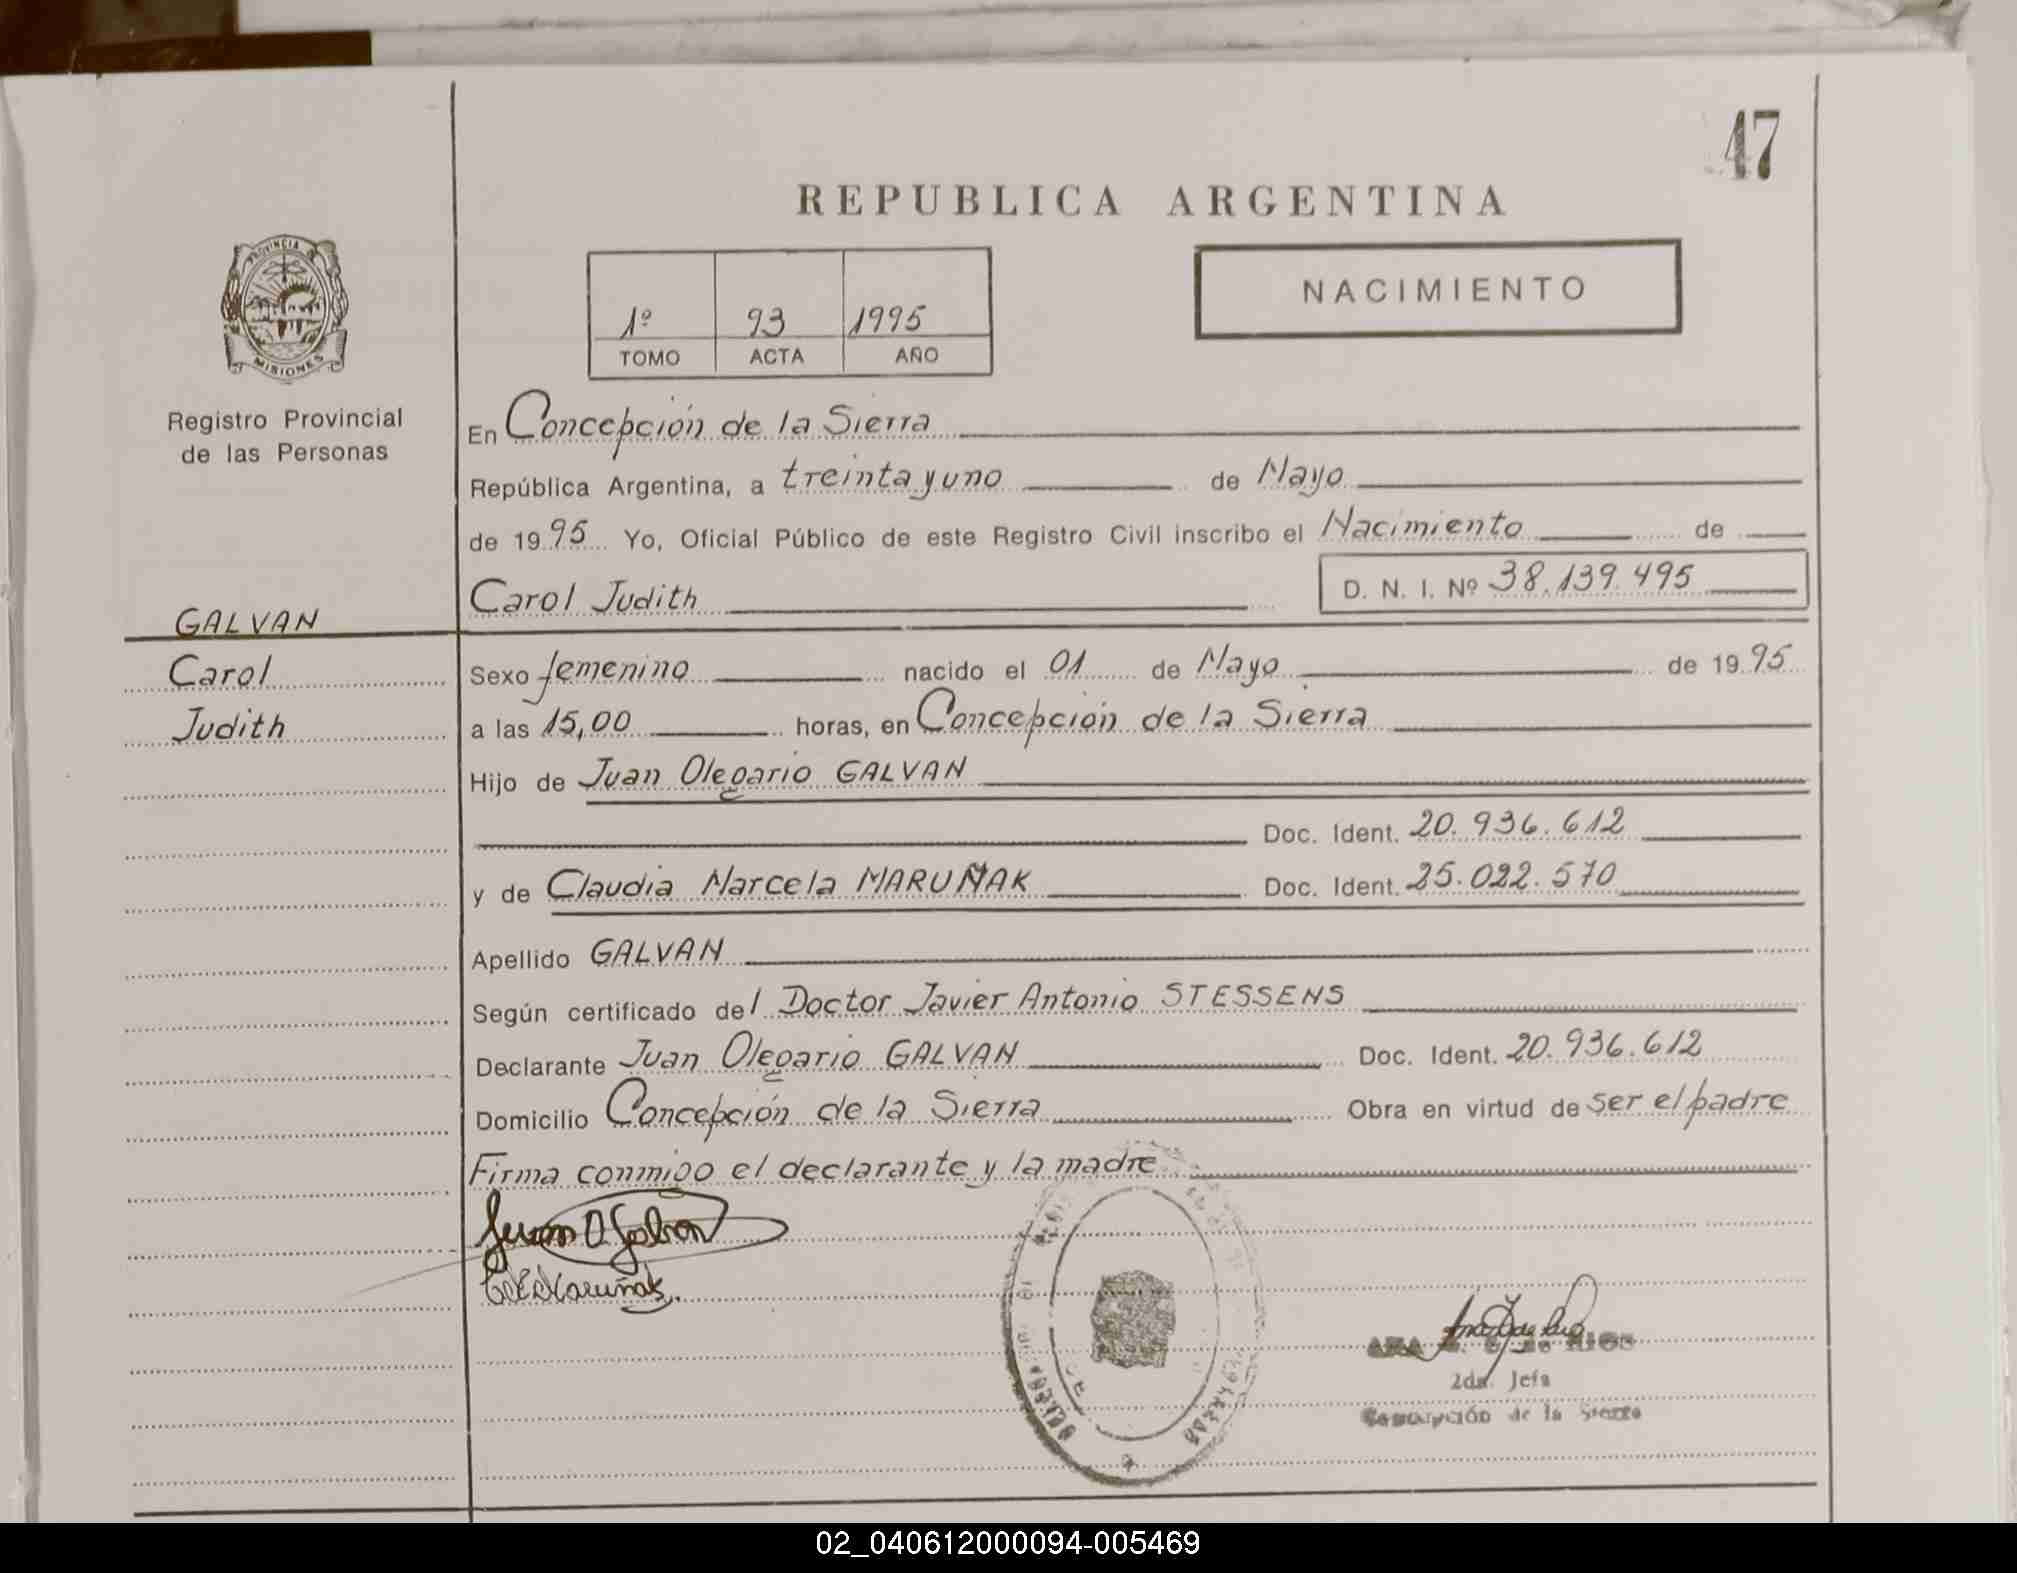 47
REPUBLICA ARGENTINA
PROVINCIA
MISIONES
Registro Provincial
de las Personas
1º 93 1995
TOMO ACTA AÑO
NACIMIENTO
En Concepción de la Sierra
República Argentina, a treinta y uno de Mayo
de 1995 Yo, Oficial Público de este Registro Civil inscribo el Nacimiento de
Carol Judith D. N. I. Nº 38.139.495
GALVAN
Carol
Judith
Sexo femenino nacido el 01 de Mayo de 1995
a las 15,00 horas, en Concepción de la Sierra
Hijo de Juan Olegario GALVAN
Doc. Ident. 20.936.612
y de Claudia Marcela MARUÑAK Doc. Ident. 25.022.570
Apellido GALVAN
Según certificado del Doctor Javier Antonio STESSENS
Declarante Juan Olegario GALVAN Doc. Ident. 20.936.612
Domicilio Concepción de la Sierra Obra en virtud de ser el padre
Firma conmigo el declarante y la madre
Juan O Galvan
Maruñak
ANA de RIOS
2da. Jefa
Concepción de la Sierra
02_040612000094-005469